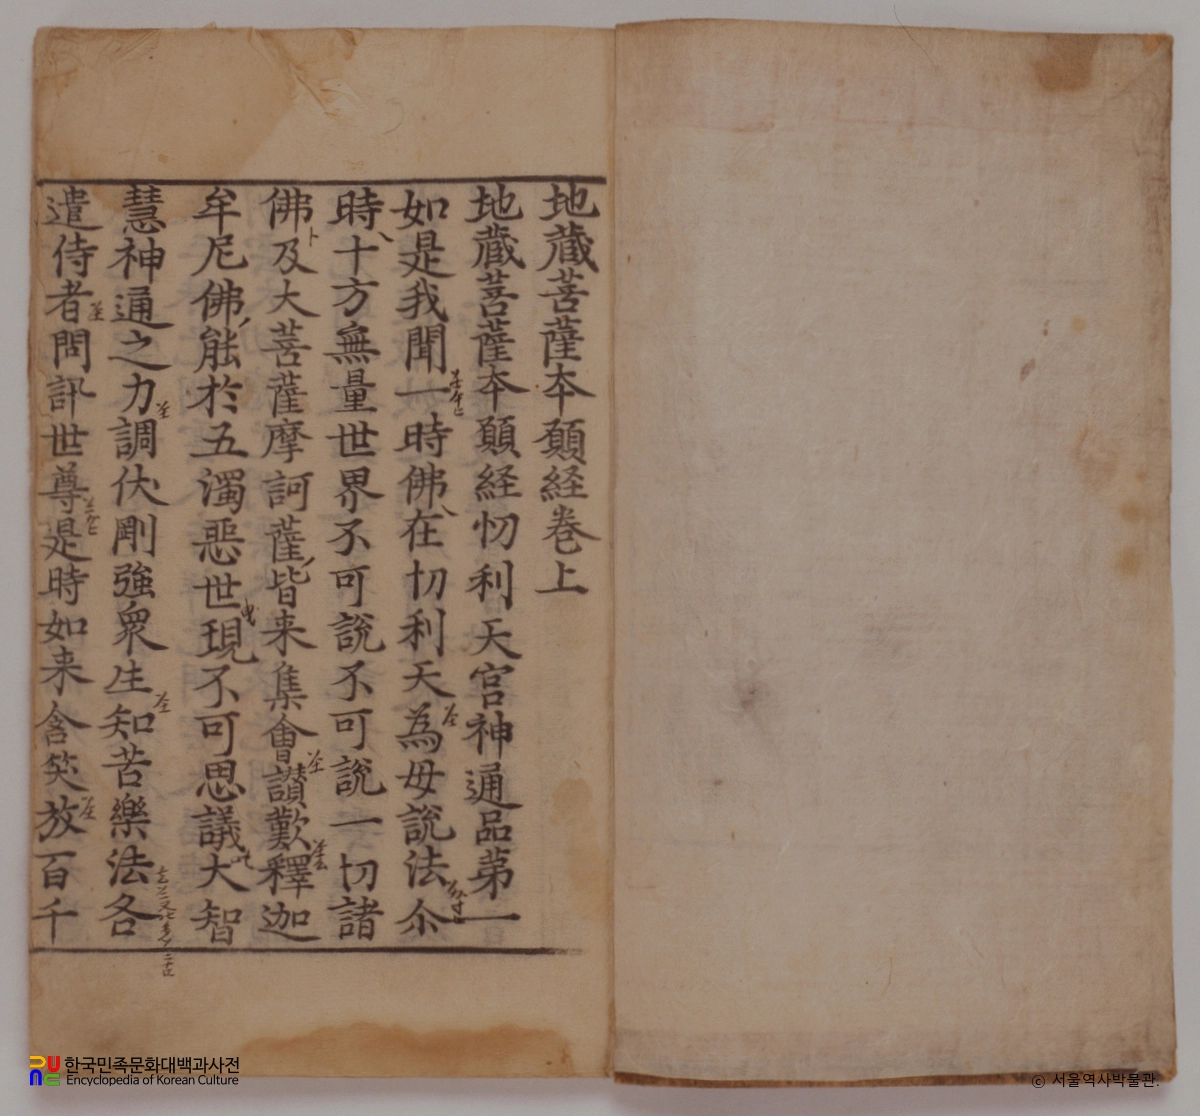 地蔵菩薩夲願経巻上
地蔵菩薩夲願経忉利天宮神通品苐一
如是我聞一時佛在忉利天為母說法尒
時十方無量世界不可說不可說一切諸
佛及大菩薩摩訶薩皆来集會讃歎釋迦
牟尼佛能於五濁惡世現不可思議大智
慧神通之力調伏剛強衆生知苦樂法各
遣侍者問訊世尊是時如来含笑放百千
한국민족문화대백과사전
Encyclopedia of Korean Culture
ⓒ 서울역사박물관.